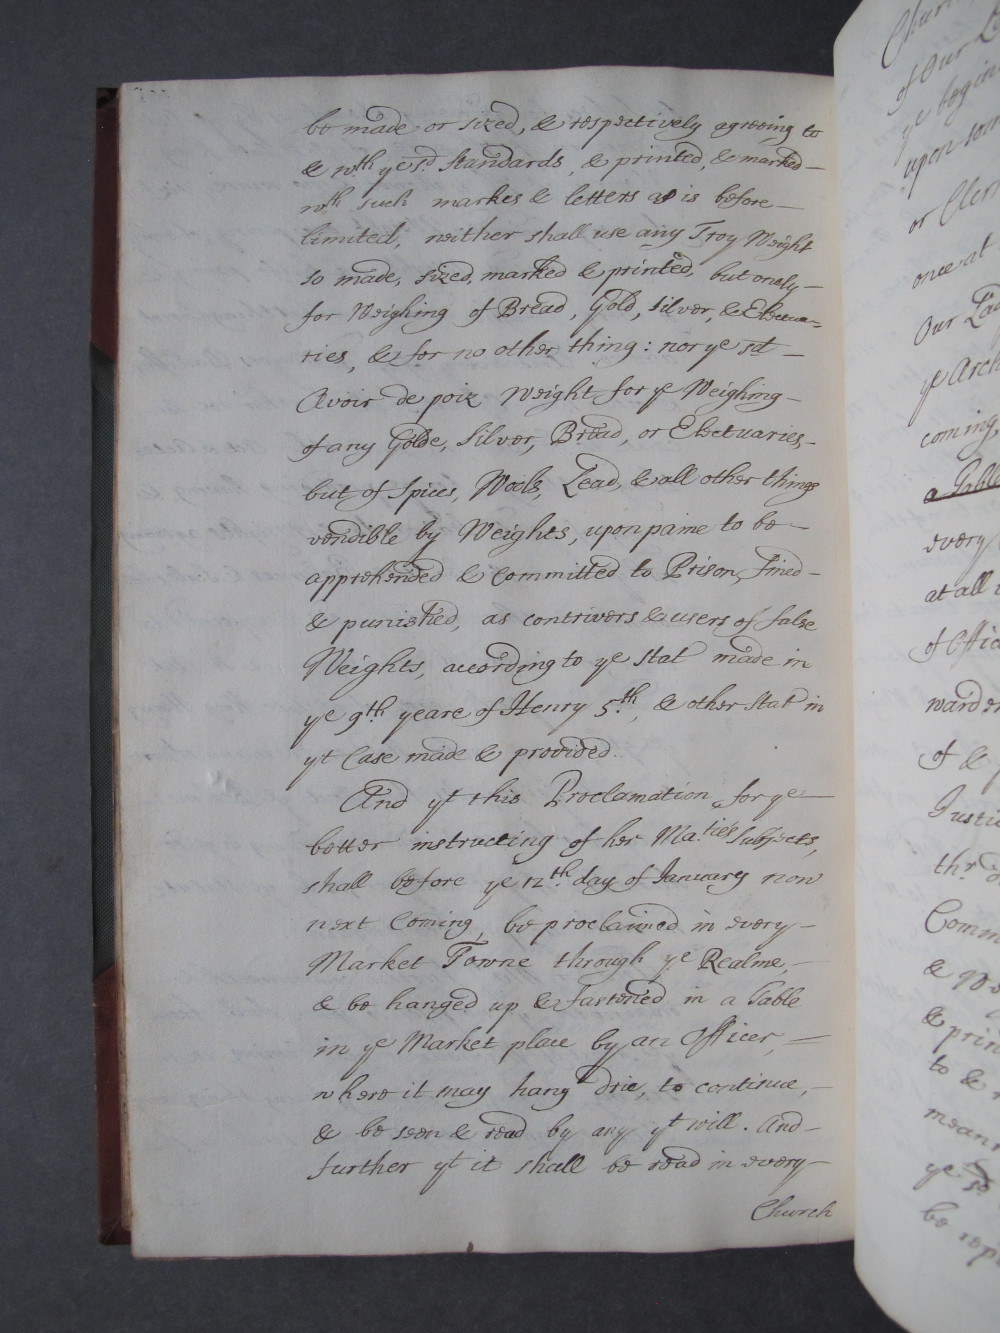 be made or sized, & respectively agreeing to
& wth ye sd. Standards, & printed, & marked
wth such markes & letters as is before
limited, neither shall use any Troy Weight
so made, sized, marked & printed, but onely
for Weighing of Bread, Gold, Silver, & Electua-
ries, & for no other thing: nor ye sd
Avoir de poiz Weight for ye Weighing
of any Golde, Silver, Bread, or Electuaries,
but of Spices, Wools, Lead, & all other things
vendible by Weights, upon paine to be
apprehended & committed to Prison, fined
& punished, as contrivers & users of false
Weights, according to ye Stat made in
ye 9th yeare of Henry 5th, & other Stat in
yt Case made & provided.
And yt this Proclamation, for ye
better instructing of her Maties Subjects,
shall before ye 12th day of January now
next Coming, be proclaimed in every
Market Towne through ye Realme,
& be hanged up & fastened in a Table
in ye Market place by an Officer,
where it may hang drie, to continue,
& be seen & read by any yt will. And
further yt it shall be read in every
Church
of Our
ye begin
upon som
or Cler
once at
Our La
ye Arch
coming,
a Table
every
at all
of Offic
warden
of &
Justic
Comm
& prin
to &
mean
ye sd
be rep